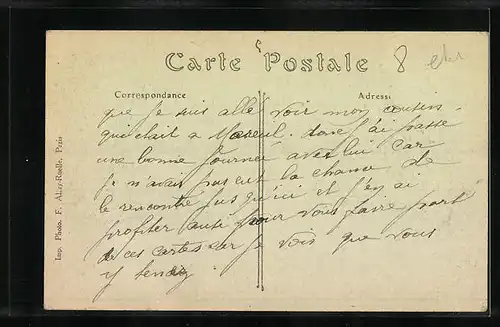 Carte Postale 8
Correspondance Adresse
que Je suis allé voir mon cousin
qui était a Mareuil. donc J'ai passé
une bonne Journée avec lui car
Je n'avais pas eut la chance de
le rencontré Jusqu'ici et J'en ai
profiter aussi pour vous faire part
de ces cartes car Je vois que vous
y tenez
Imp. Photo. F. Aliry-Ruelle, Paris